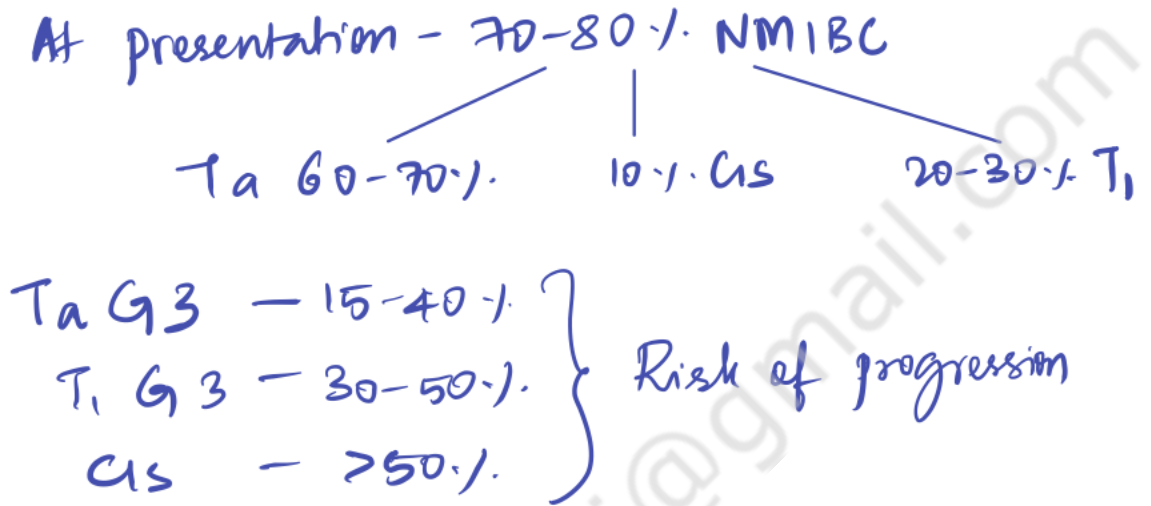 At presentation - 70-80 % NMIBC
Ta 60-70% 10% Cis 20-30% T₁
Ta G3 — 15-40 %
T₁ G3 — 30-50% Risk of progression
Cis — >50%
@gmail.com